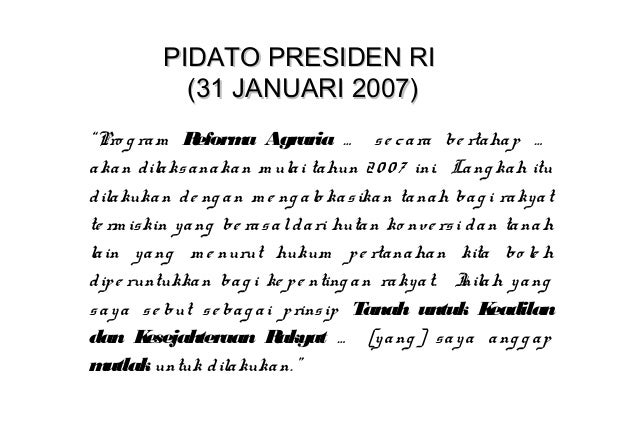 PIDATO PRESIDEN RI
(31 JANUARI 2007)
“Program Reforma Agraria ... secara bertahap ...
akan dilaksanakan mulai tahun 2007 ini. Langkah itu
dilakukan dengan mengalokasikan tanah bagi rakyat
termiskin yang berasal dari hutan konversi dan tanah
lain yang menurut hukum pertanahan kita boleh
diperuntukkan bagi kepentingan rakyat. Inilah yang
saya sebut sebagai prinsip Tanah untuk Keadilan
dan Kesejahteraan Rakyat ... [yang] saya anggap
mutlak untuk dilakukan.”